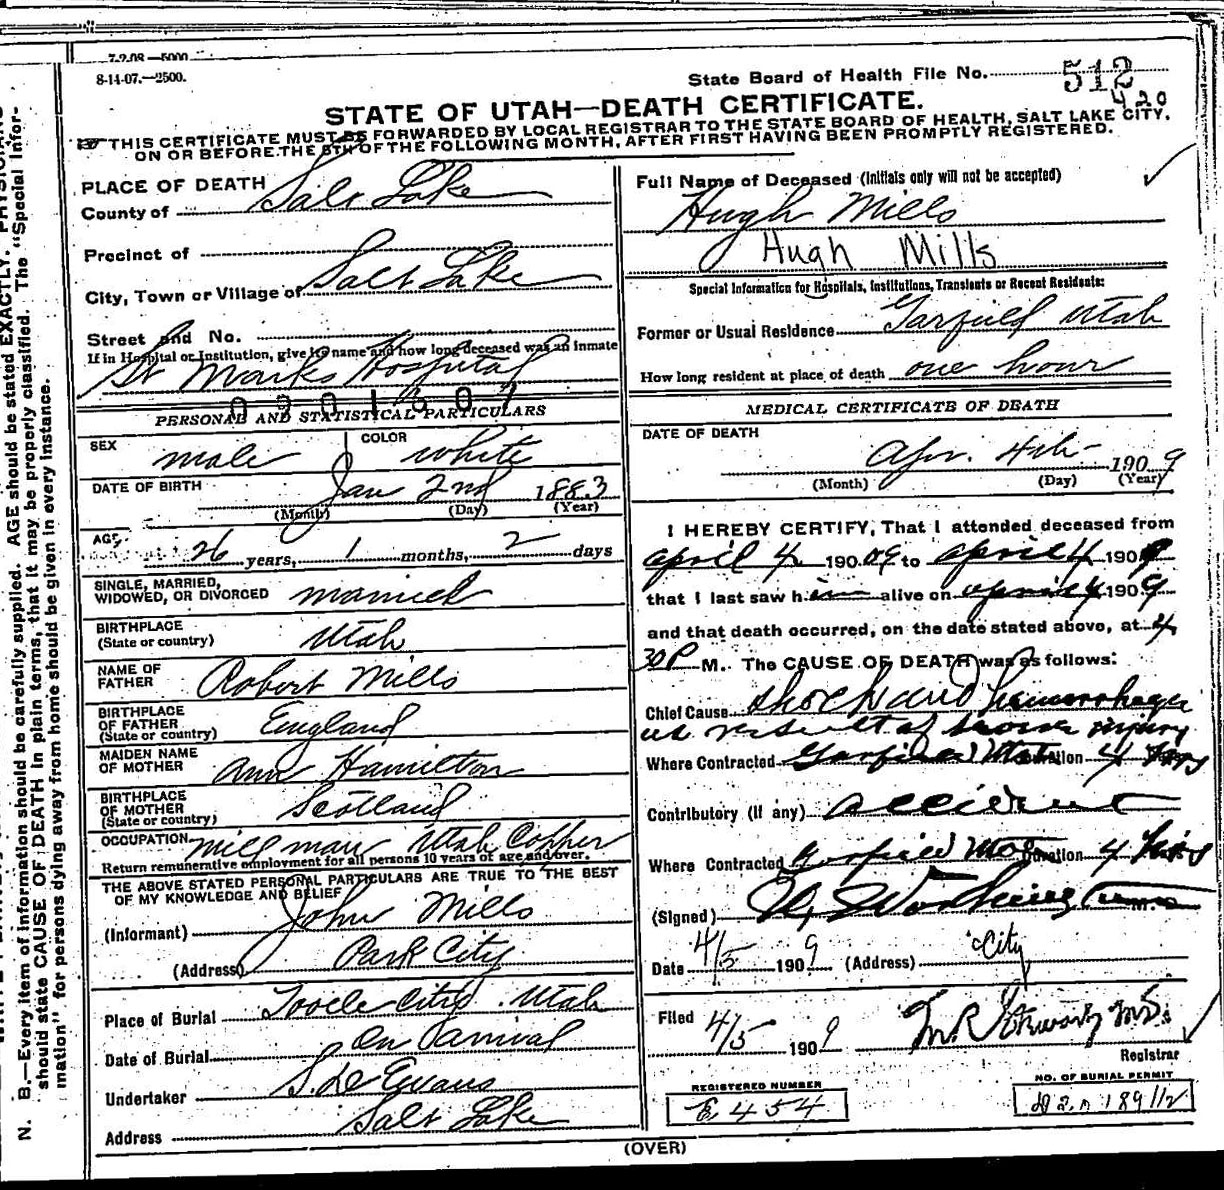 7-2-08—5000
8-14-07.—2500.
State Board of Health File No. 512
420
STATE OF UTAH—DEATH CERTIFICATE.
THIS CERTIFICATE MUST BE FORWARDED BY LOCAL REGISTRAR TO THE STATE BOARD OF HEALTH, SALT LAKE CITY,
ON OR BEFORE THE 5TH OF THE FOLLOWING MONTH, AFTER FIRST HAVING BEEN PROMPTLY REGISTERED.
PLACE OF DEATH
County of Salt Lake
Precinct of
City, Town or Village of Salt Lake
Street and No.
If in Hospital or Institution, give its name and how long deceased was an inmate
St Marks Hospital
PERSONAL AND STATISTICAL PARTICULARS
SEX male COLOR white
DATE OF BIRTH Jan 2nd 1883
(Month) (Day) (Year)
AGE 26 years, 1 months, 2 days
SINGLE, MARRIED,
WIDOWED, OR DIVORCED married
BIRTHPLACE
(State or country) Utah
NAME OF
FATHER Robert Mills
BIRTHPLACE
OF FATHER
(State or country) England
MAIDEN NAME
OF MOTHER Ann Hamilton
BIRTHPLACE
OF MOTHER
(State or country) Scotland
OCCUPATION mill man Utah Copper
Return remunerative employment for all persons 10 years of age and over.
THE ABOVE STATED PERSONAL PARTICULARS ARE TRUE TO THE BEST
OF MY KNOWLEDGE AND BELIEF
(Informant) John Mills
(Address) Park City
Place of Burial Tooele City. Utah
Date of Burial On arrival
Undertaker S. D. Evans
Address Salt Lake
Full Name of Deceased (Initials only will not be accepted)
Hugh Mills
Hugh Mills
Special Information for Hospitals, Institutions, Transients or Recent Residents:
Former or Usual Residence Garfield Utah
How long resident at place of death one hour
MEDICAL CERTIFICATE OF DEATH
DATE OF DEATH
Apr. 4th 1909
(Month) (Day) (Year)
I HEREBY CERTIFY, That I attended deceased from
april 4 190 09 to april 4 1909
that I last saw him alive on april 4 1909
and that death occurred, on the date stated above, at 4
30 P M. The CAUSE OF DEATH was as follows:
Chief Cause shock and hemorrhage
as result of injury
Where Contracted Garfield Utah Duration 4 hrs
Contributory (if any) accident
Where Contracted Garfield Duration 4 hrs
(Signed) Worthington M.D.
Date 4/5 1909 (Address) City
Filed 4/5 1909 M.D.
Registrar
REGISTERED NUMBER
E 454
NO. OF BURIAL PERMIT
(OVER)
N. B.—Every item of information should be carefully supplied. AGE should be stated EXACTLY. PHYSICIANS
should state CAUSE OF DEATH in plain terms, that it may be properly classified. The "Special Infor-
mation" for persons dying away from home should be given in every instance.